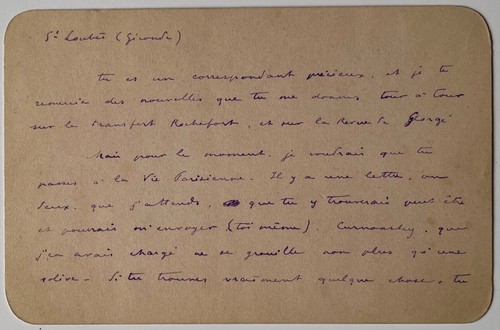 St Loubès (Gironde)
tu es un correspondant précieux, et je te
remercie des nouvelles que tu me donnes tour à tour
sur le transfert Rochefort, et sur la Revue de George
Mais pour le moment, je voudrais que tu
passes à la Vie Parisienne. Il y a une lettre, ou
deux, que j'attends, que tu y trouverais peut être
et pourrais m'envoyer (toi même). Curnonsky, que
j'en avais chargé ne se grouille non plus qu'une
solive. Si tu trouves vraiment quelque chose, tu